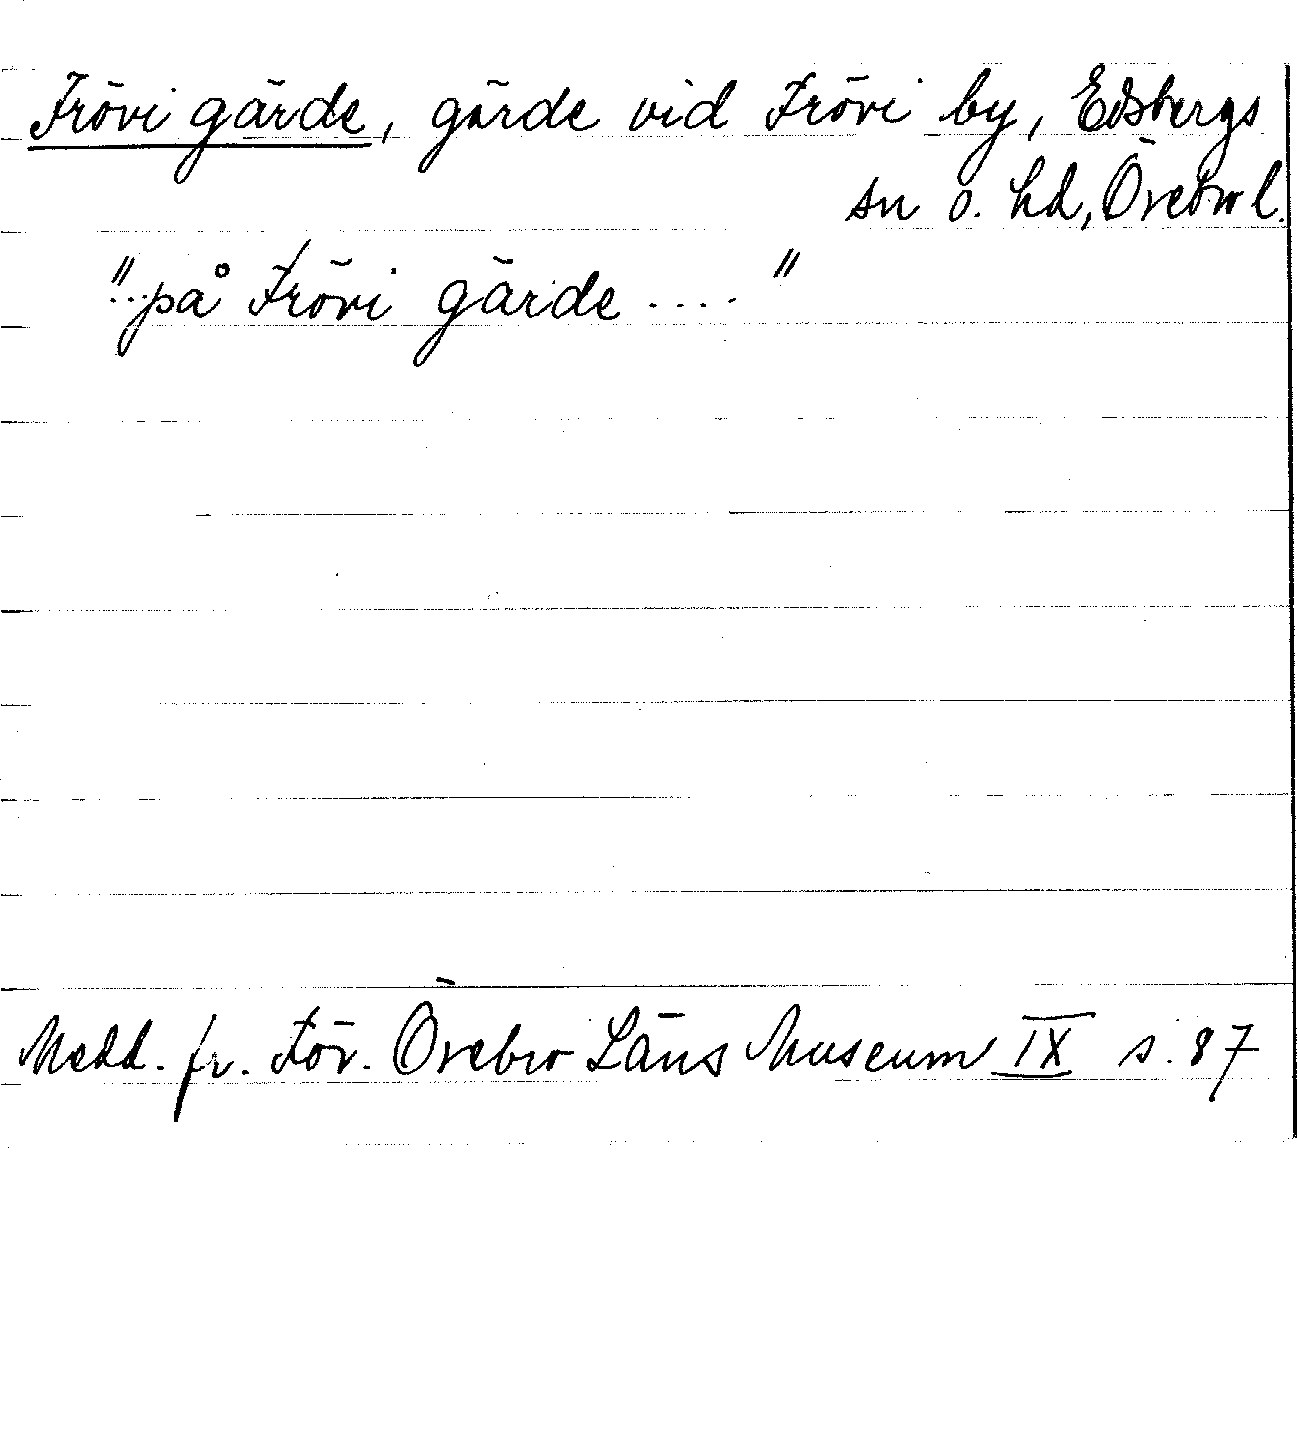 Frövi gärde, gärde vid Frövi by, Edsbergs
sn o. hd, Örebro l.
"...på Frövi gärde ...."
Medd. fr. För. Örebro Läns Museum IX s. 87